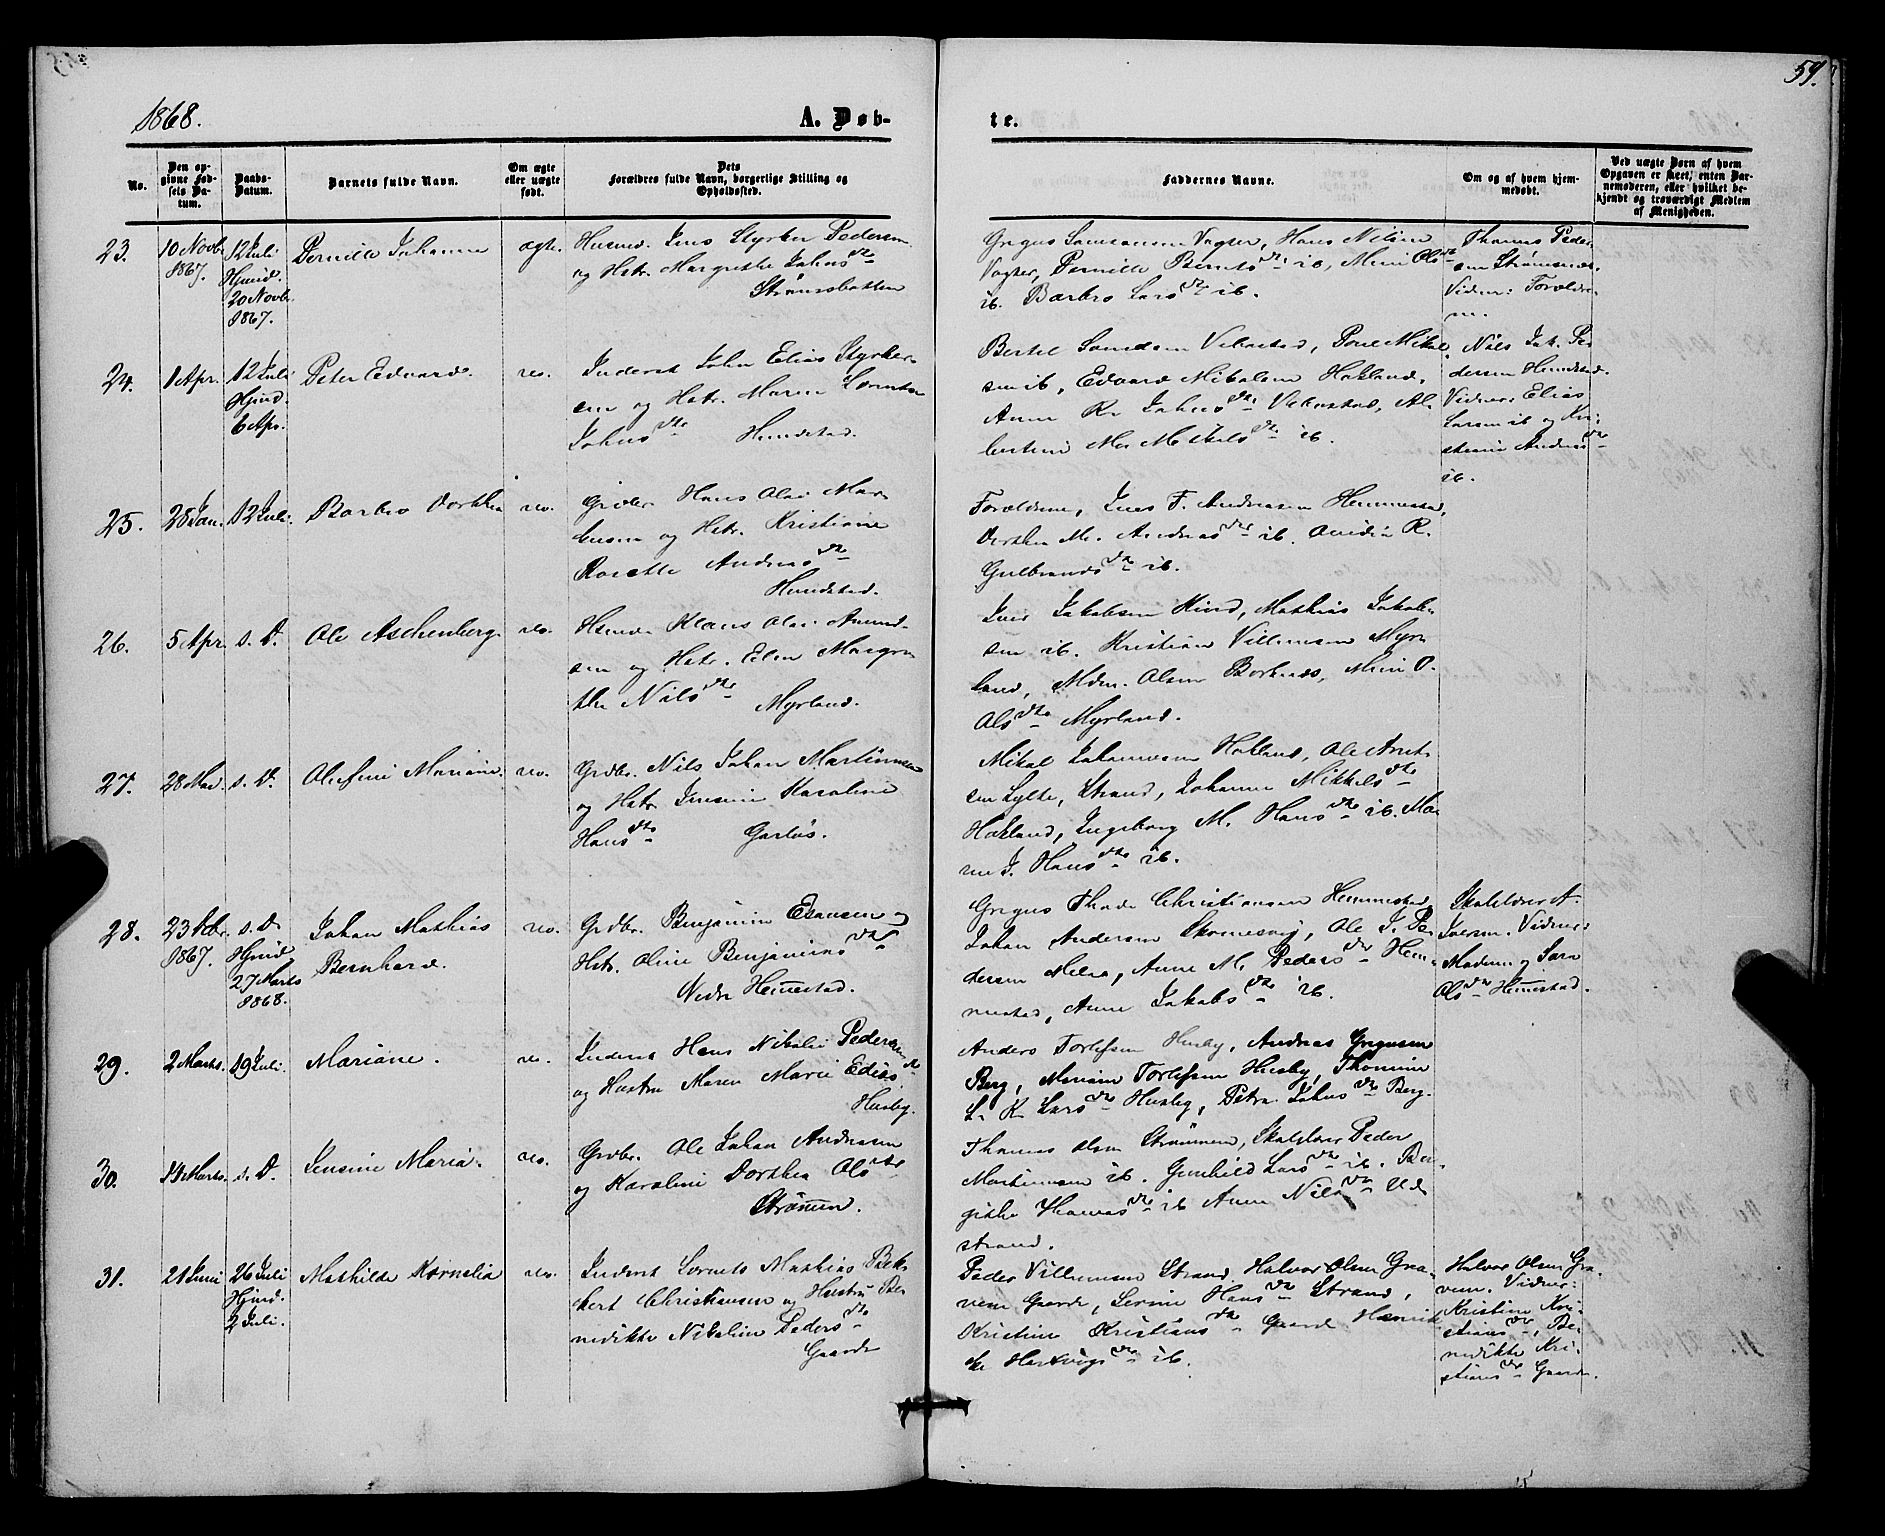 59.
1868.
A. Døb-
te.
No.
Den op-
givne Fød-
sels Da-
tum.
Daabs-
Datum.
Barnets fulde Navn.
Om ægte
eller uægte
født.
Dets
Forældres fulde Navn, borgerlige Stilling og
Opholdssted.
Faddernes Navne.
Om og af hvem hjem-
medøbt.
Ved uægte Børn af hvem
Opgaven er skeet, enten Bar-
nemoderen, eller hvilket be-
kjendt og troværdigt Medlem
af Menigheden.
23.
10 Novb.
1867.
12 Juli
Hjmd.
20 Novb.
1867.
Pernille Johanna
ægte.
Husmd. Jens Styrker Pedersen
og Hstr. Margrethe Johns dtr
Strømsbotten
Gregus Samsonsen Vogter, Hans Nilsen
Vogter, Pernille Bernts dtr ib, Mari Ols dtr
ib. Barbro Lars dtr ib.
Thomas Peder-
sen Strømsnæs.
Vidner: Forældre-
ne.
24.
1 Apr.
12 Juli
Hjmd.
6 Apr.
Peter Edvard.
do.
Inderst John Elias Styrker-
sen og Hstr. Maren
Johns dtr Hundstad.
Bertel Vikestad, Poul Mikal-
sen ib, Edvard Mikalsen Hokland,
Anne K. Johns dtr Vikestad, Al-
bertine M. Mikels dtr ib.
Nils Joh. Pe-
dersen Hundstad.
Vidner: Elias
Larsen ib og Kri-
stiane Andreas dtr
ib.
25.
28 Jan.
12 Juli.
Barbro Dorthea
do.
Grdbr. Hans Olai Mar-
kusen og Hstr. Kristiane
Rosette Andreas dtr
Hundstad.
Forældrene, Jens F. Andreasen Hemmestad,
Dorthea M. Andreas dtr ib. R.
Gulbrands dtr ib.
26.
5 Apr.
s. D.
Ole Aschenberg.
do.
Husmd. Klaus Olai Amund-
sen og Hstr. Elen Margre-
the Nils dtr Myrland.
Iver Jakobsen Kind, Mathias Jakob-
sen ib. Kristian Villumsen Myr-
land, Olsen Borknæs, Marie O.
Ols dtr Myrland.
27.
28 Mai.
s. D.
Olufine Mariane.
do.
Grdbr. Nils Johan Martinusen
og Hstr. Jensine Karoline
Hans dtr Garløs.
Mikal Johannesen Hokland, Ole Arnt-
sen Sylte, Strand, Johanna Mikkels dtr
Hokland, Ingeborg M. Hans dtr ib. Ma-
rie J. Hans dtr ib.
28.
23 Febr.
1867.
s. D.
Hjmd.
27 Marts
1868.
Johan Mathias
Bernhard.
do.
Grdbr. Benjamin Esaisen og
Hstr. Oline Benjamins dtr
Nedre Hemestad.
Gregus Thode Christiansen Hemmestad,
Johan Andersen Skomesvig, Ole J. Pe-
dersen Melaa, Anne M. Peders dtr Hem-
mestad, Anne Jakobs dtr ib.
Skolelærer A.
Iversen. Vidner:
Moderen og Sara
Ols dtr Hemestad.
29.
2 Marts.
19 Juli.
Mariane.
do.
Inderst Hans Nikolai Pedersen
og Hustru Maren Marie Edias dtr
Husby.
Anders Torlefsen Husby, Andreas Gregusen
Berg, Mariane Torlefsen Husby, Thomine
L. K. Lars dtr Husby, Petra Johns dtr Berg.
30.
14 Marts.
s. D.
Jensine Maria.
do.
Grdbr. Ole Johan Andreasen
og Karoline Dorthea Ols dtr
Strømmen.
Thomas Olsen Strømmen, Skolelærer Peder
Martinusen ib. Gunhild Lars dtr ib. Bir-
githe Thomas dtr ib Anne Nils dtr Ud-
strand.
31.
21 Juni
26 Juli
Hjmd.
2 Juli.
Mathilde Kornelia
do.
Inderst Lornts Mathias Bek-
kert Christiansen og Hustru Be-
nedikte Nikoline Peders dtr
Gaarde
Peder Villumsen Strand, Halvor Olsen Gra-
vem Gaarde, Serine Hans dtr Strand,
Kristine Kristians dtr Gaarde Henrik-
ke Hartvigs dtr ib.
Halvor Olsen Gra-
vem. Vidner:
Kristine Kri-
stians dtr, Be-
nedikte Kri-
stians dtr Gaarde.